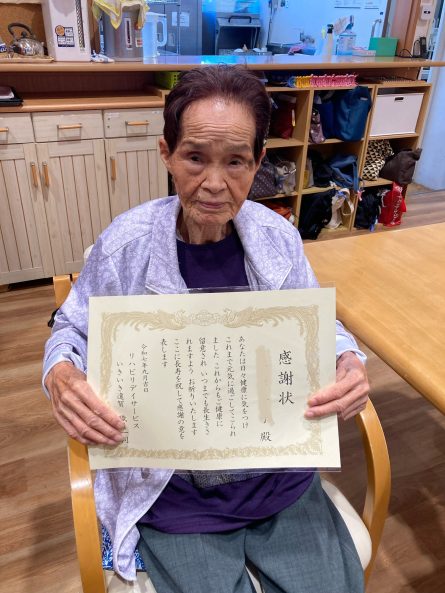 感謝状
殿
あなたは日々健康に気をつけ
これまで元気に過ごしてこられ
ました これからもご健康に
留意され いつまでも長生きさ
れますよう お祈りいたします
ここに長寿を祝して感謝の意を
表します
令和七年九月吉日
リハビリデイサービス
いきいき遠賀